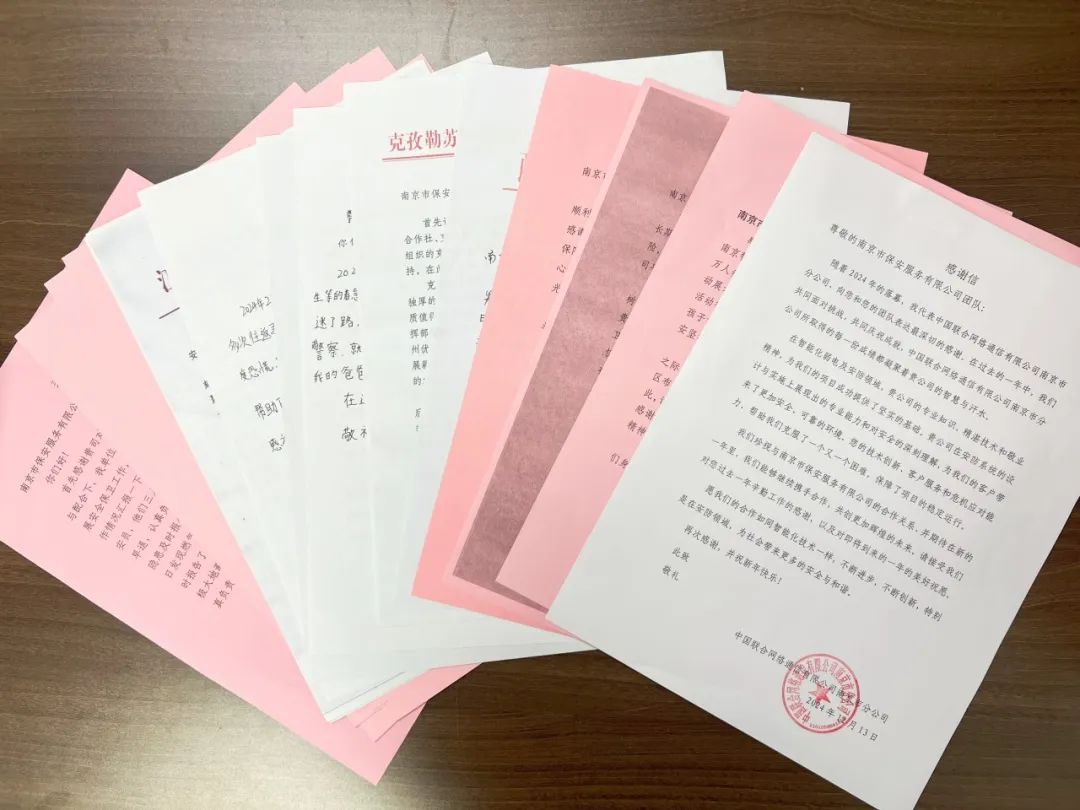 南京市保安服务有限公
你们好!
首先感谢贵司
与统合下,我单位
展安全保卫工作,
作情况汇报一下
安员,他们三
早退,认真负
隐患及时报
日发现燃
时报告了
极大地
真负责
安
2024年2
多次往返
度恐慌
帮助
感
你
202
生等的着急
迷了路,
警察.就
我的爸爸
在
敬礼
克孜勒苏
南京市保安
首先
合作社、
组织的克
持。在
克
独厚的
质值
挥部
州优
展
的
南
南京市
顺利
感谢
保障
心
光
南京
长期
险,
司
南京市
南京
万人
动展
活动
孩子
安坚
之际
区布
此,
感谢
精神
们身
感谢信
尊敬的南京市保安服务有限公司团队:
随着2024年的落幕,我代表中国联合网络通信有限公司南京市
分公司,向您和您的团队表达最深切的感谢。在过去的一年中,我们
共同面对挑战,共同庆祝成就,中国联合网络通信有限公司南京市分
公司所取得的每一阶成绩都凝聚着贵公司的智慧与汗水。
在智能化弱电及安防领域,贵公司的专业知识、精湛技术和敬业
精神,为我们的项目成功提供了坚实的基础。贵公司在安防系统的设
计与实施上展现出的专业能力和对安全的深刻理解,为我们的客户带
来了更加安全、可靠的环境。您的技术创新、客户服务和危机应对能
力,帮助我们克服了一个又一个困难,保障了项目的稳定运行。
我们珍视与南京市保安服务有限公司的合作关系,并期待在新的
一年里,我们能够继续携手合作,共创更加辉煌的未来。请接受我们
对您过去一年辛勤工作的感谢,以及对即将到来的一年的美好祝愿。
愿我们的合作如同智能化技术一样,不断进步,不断创新,特别
是在安防领域,为社会带来更多的安全与和谐。
再次感谢,并祝新年快乐!
此致
敬礼
中国联合网络通信有限公司南京市分公司
2024年12月13日